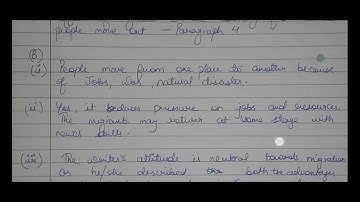 people move out — Paragraph 4
(B)
(i) People move from one place to another because
of Jobs, War, natural disaster.
(ii) Yes, it reduces pressure on jobs and resources.
The migrants may return at some stage with
newer skills.
(iii) The writer's attitude is neutral towards migration
as he/she described both the advantages